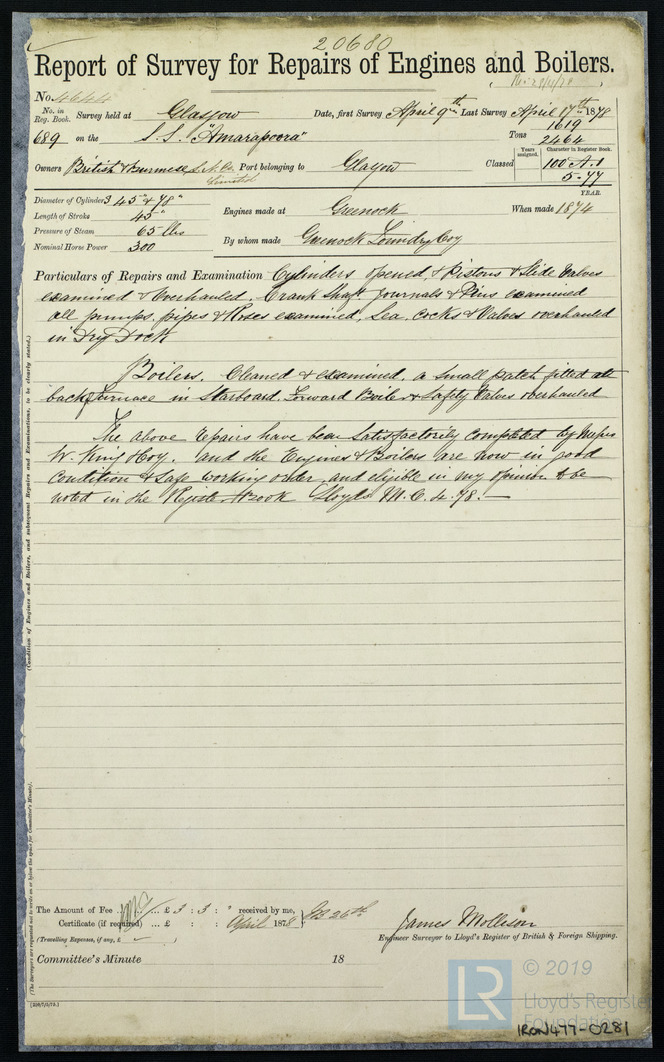 20680
Report of Survey for Repairs of Engines and Boilers.
No. 4644
No. in Reg. Book. Survey held at Glasgow Date, first Survey April 9th Last Survey April 17th 1878
689 on the S.S. "Amarapoora" Tons 1619
2464
Owners British & Burmese S. N. Co. Limited Port belonging to Glasgow Classed
Years assigned. Character in Register Book.
100 A.1
5.77
YEAR.
Diameter of Cylinders 45" & 78"
Length of Stroke 45"
Pressure of Steam 65 lbs
Nominal Horse Power 300
Engines made at Greenock When made 1874
By whom made Greenock Foundry Coy
Particulars of Repairs and Examination Cylinders opened, & Pistons & Slide Valves
examined & Overhauled, Crank Shaft Journals & Pins examined
all pumps, pipes & Roses examined, Sea Cocks & Valves overhauled
in Dry Dock
Boilers. Cleaned & examined, a small patch fitted at
back furnace in Starboard Forward Boiler & Safety Valves overhauled
The above repairs have been Satisfactorily completed by Messrs
W. King & Coy. and the Engines & Boilers are now in good
Condition & Safe working order, and eligible in my opinion to be
noted in the Register Book Lloyds M.C. 4.78.
(Condition of Engines and Boilers, and subsequent Repairs and Examinations, to be clearly stated.)
(The Surveyors are requested not to write on or below the space for Committee's Minute.)
The Amount of Fee ... £ 3 : 3 : " received by me,
Certificate (if required) ... £ : : April 1878 26th
(Travelling Expenses, if any, £ )
James Mollison
Engineer Surveyor to Lloyd's Register of British & Foreign Shipping.
Committee's Minute 18
LR © 2019
Lloyd's Register
Foundation
IRON477-0281